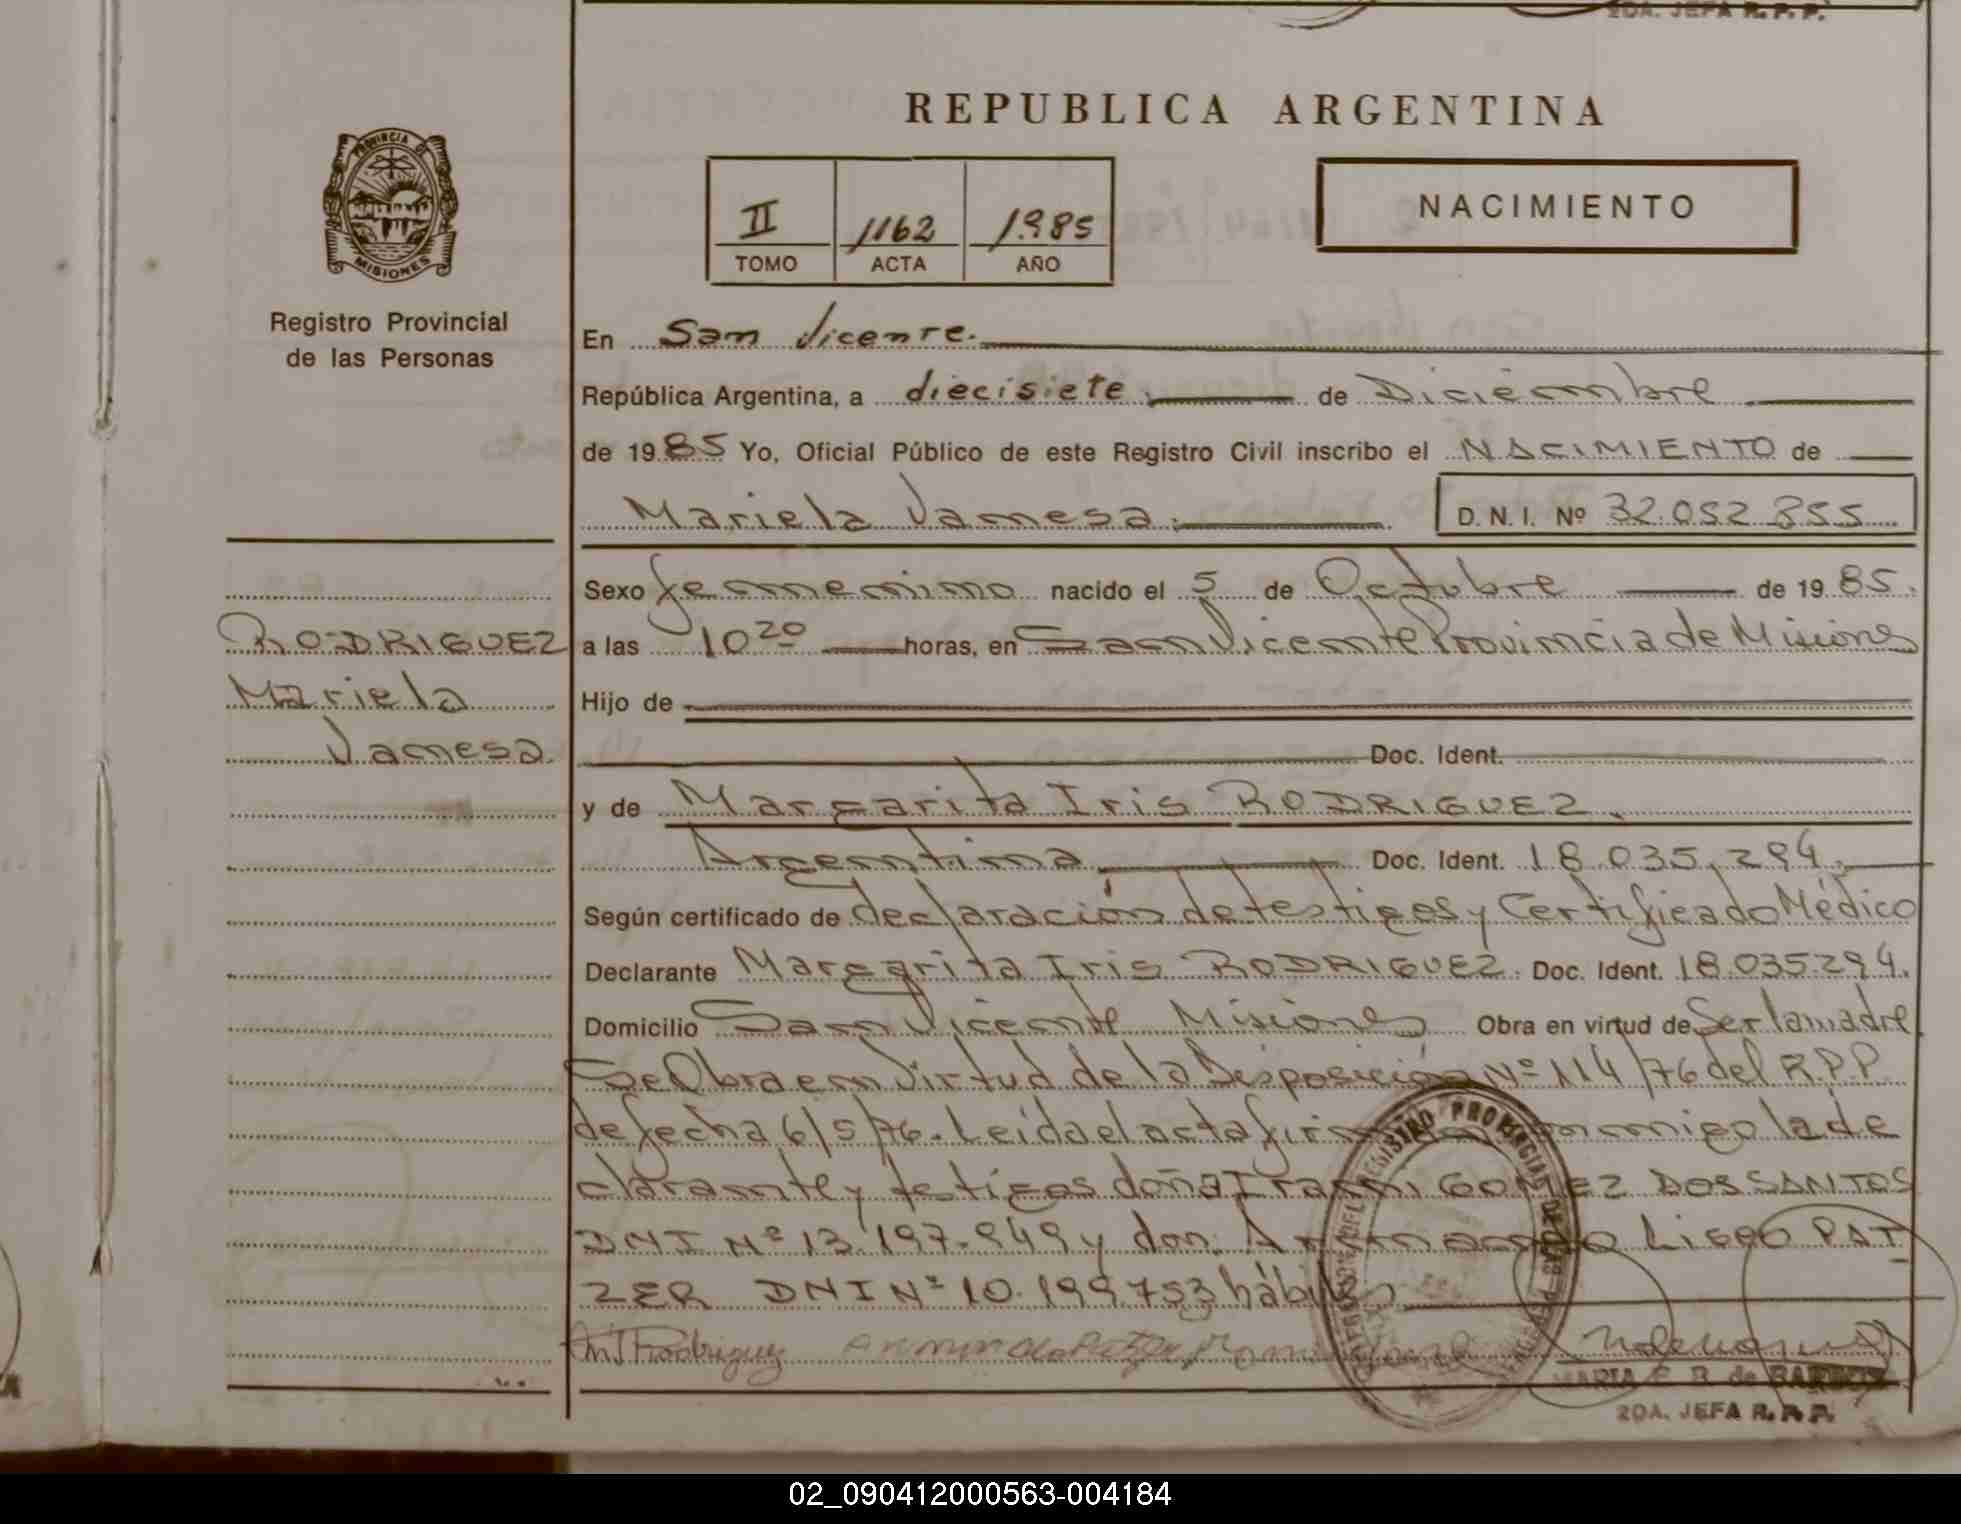 2DA. JEFA R. P. P.
REPUBLICA ARGENTINA
PROVINCIA DE
MISIONES
II 1162 1985
TOMO ACTA AÑO
NACIMIENTO
Registro Provincial
de las Personas
En San Vicente.
República Argentina, a diecisiete de Diciembre
de 1985 Yo, Oficial Público de este Registro Civil inscribo el NACIMIENTO de
Mariela Vanesa. D. N. I. Nº 32.052.855
Sexo femenino nacido el 5 de Octubre de 1985.
RODRIGUEZ
Mariela
Vanesa.
a las 10 20 horas, en San Vicente Provincia de Misiones
Hijo de
Doc. Ident.
y de Margarita Iris RODRIGUEZ.
Argentina Doc. Ident. 18.035.294.
Según certificado de declaración de testigos y Certificado Médico
Declarante Margarita Iris RODRIGUEZ. Doc. Ident. 18.035.294.
Domicilio San Vicente Misiones Obra en virtud de Ser la madre
Se Obra en Virtud de la Disposición Nº 114/76 del R.P.P.
de fecha 6/5/76. Leida el acta conmigo la de
clarante y testigos doña GOMEZ DOS SANTOS
DNI Nº 13.197.949 y don: PAT
ZER DNI Nº 10.199.753 hábiles
Rodriguez
MARIA E. R. de
2DA. JEFA R. P. P.
02_090412000563-004184